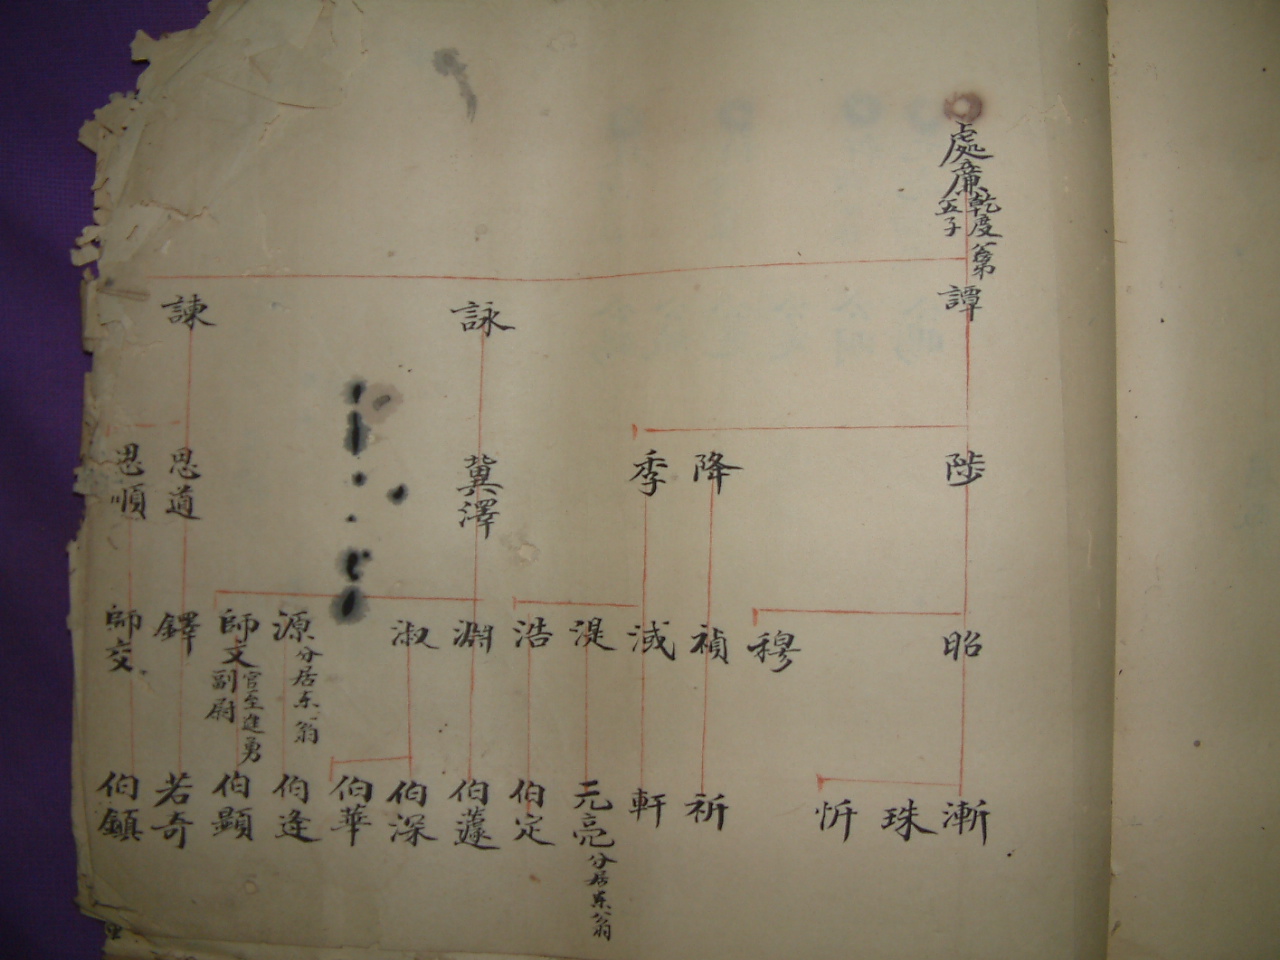 處廉 乾度翁第五子
譚
詠
諫
陟
降
季
冀澤
思道
思順
昭
穆
禎
減
湜
浩
淵
淑
源 分居东翁
師文 官至進勇副尉
鐸
師交
漸
珠
忻
祈
軒
元亮 分居东翁
伯定
伯蘧
伯深
伯華
伯逢
伯顯
若奇
伯鎮